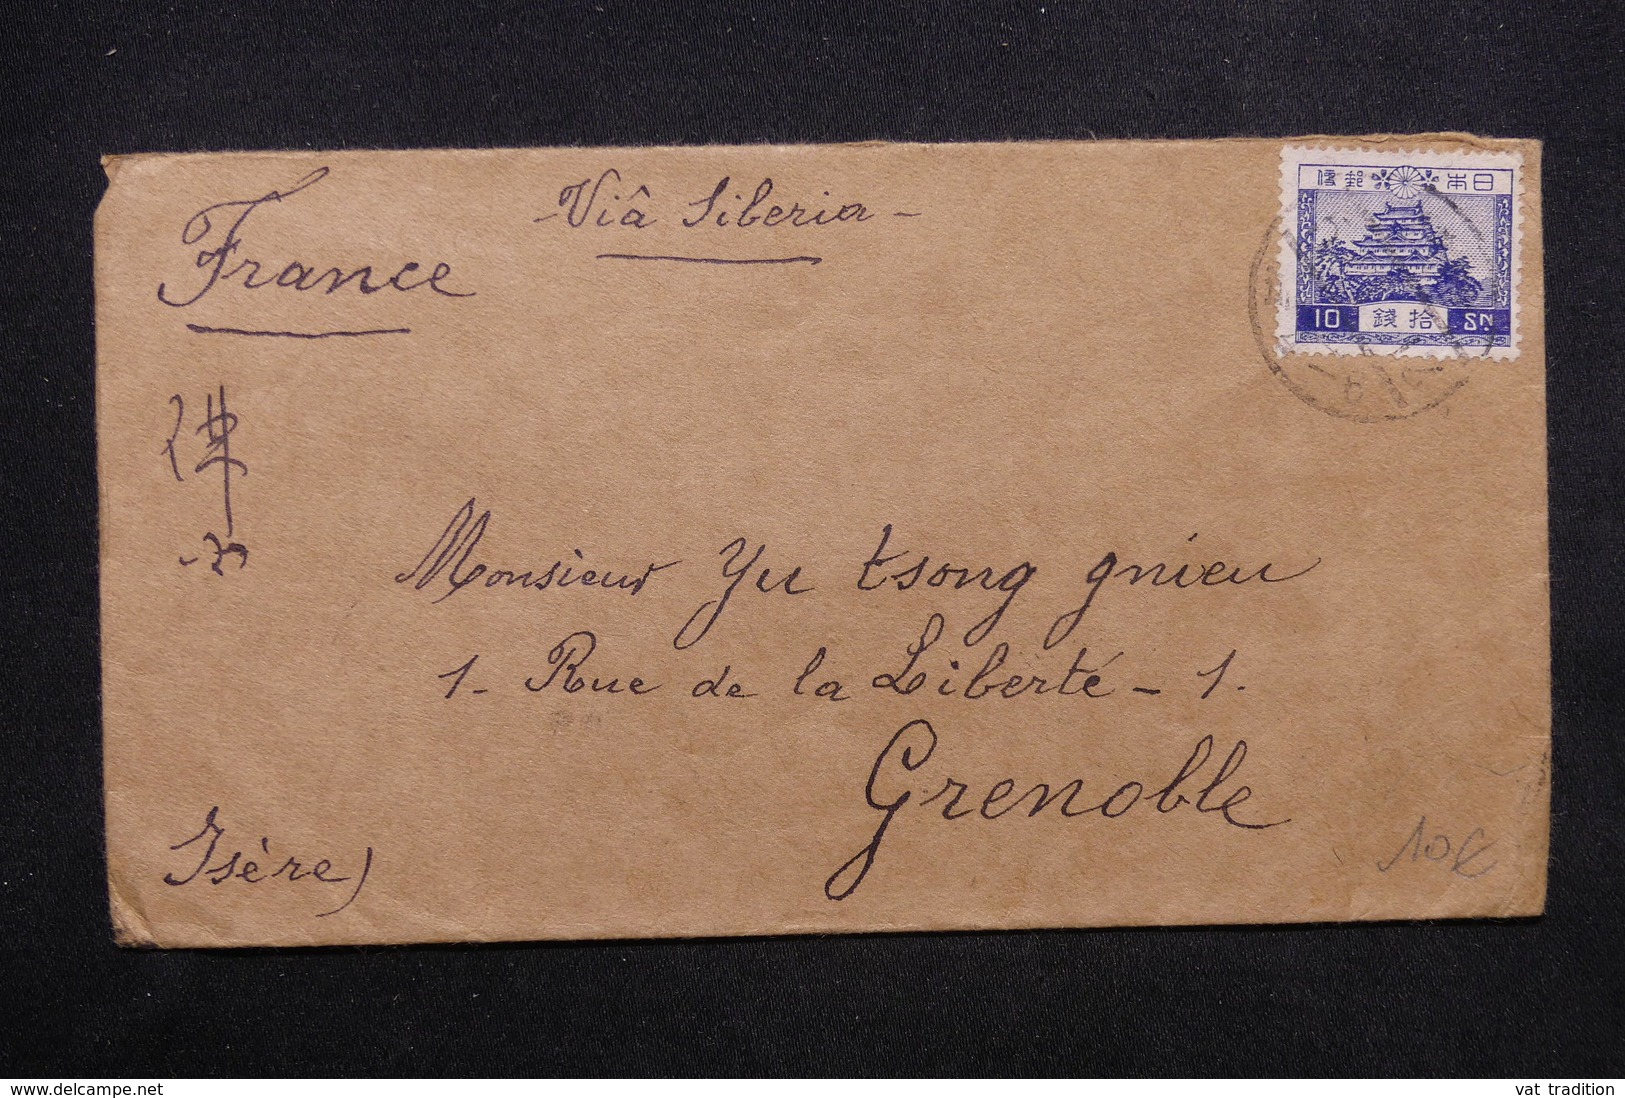 France
- Viâ Siberia -
日本郵便
10 拾錢 SN.
佛
Monsieur Yu tsong gnieu
1 - Rue de la Liberté - 1.
Grenoble
Isère)
10€
delcampe.net
vat_tradition